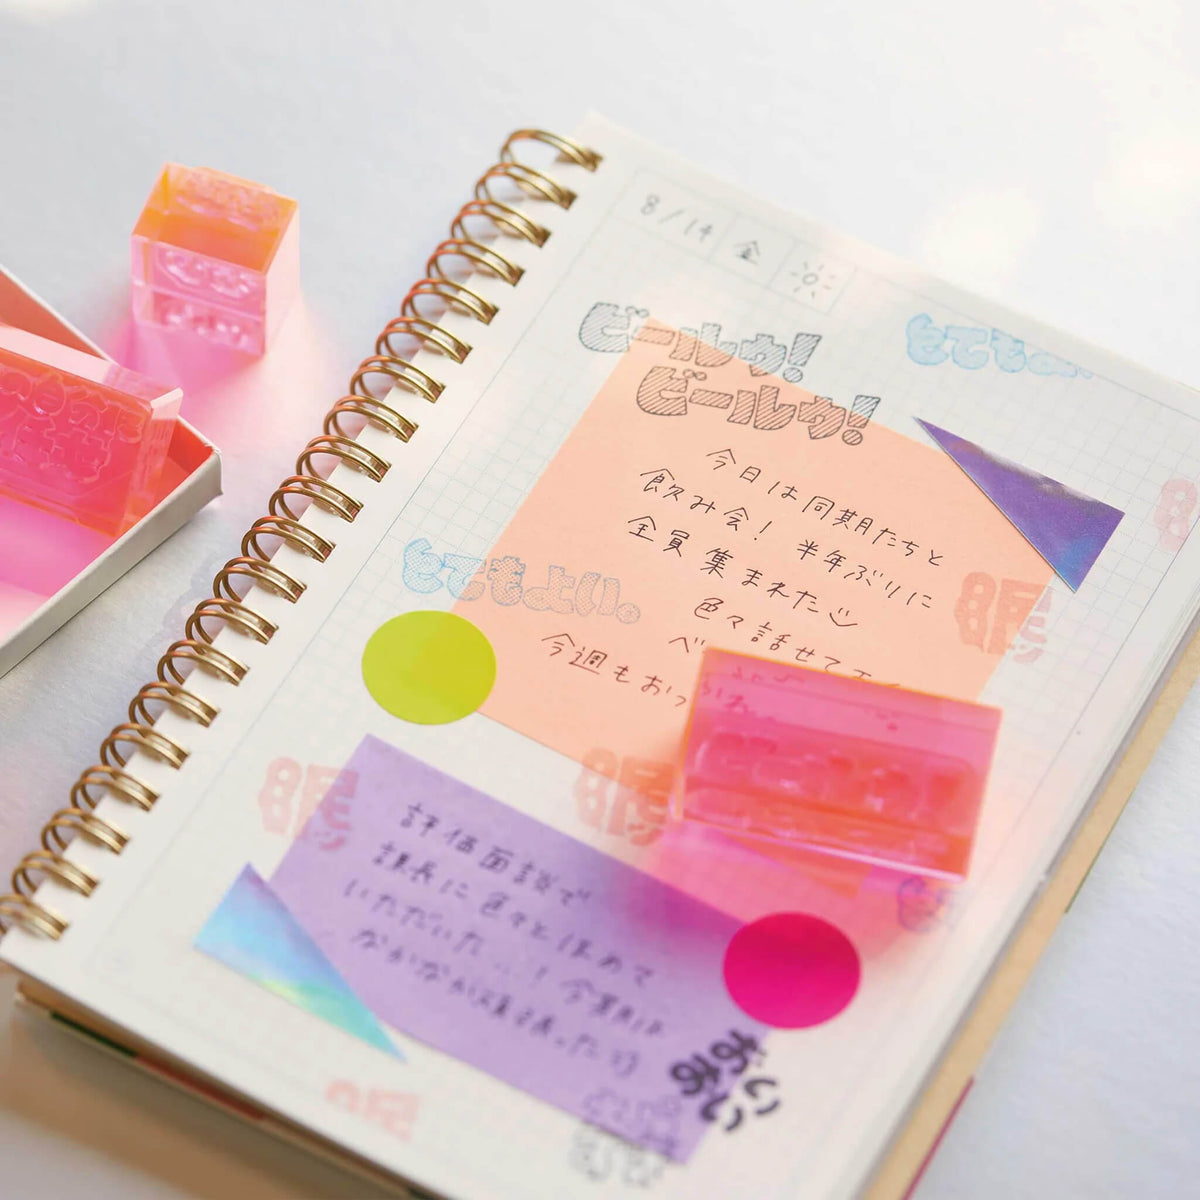 8/14 金
ビールゥ!
ビールゥ!
とてもよい。
今日は同期たちと
飲み会! 半年ぶりに
全員集まれた
色々話せて
今週もおつ
とてもよい。
眠
眠
眠
評価面談で
課長に色々とほめて
いただいた
なかなか
おい
おい
眠